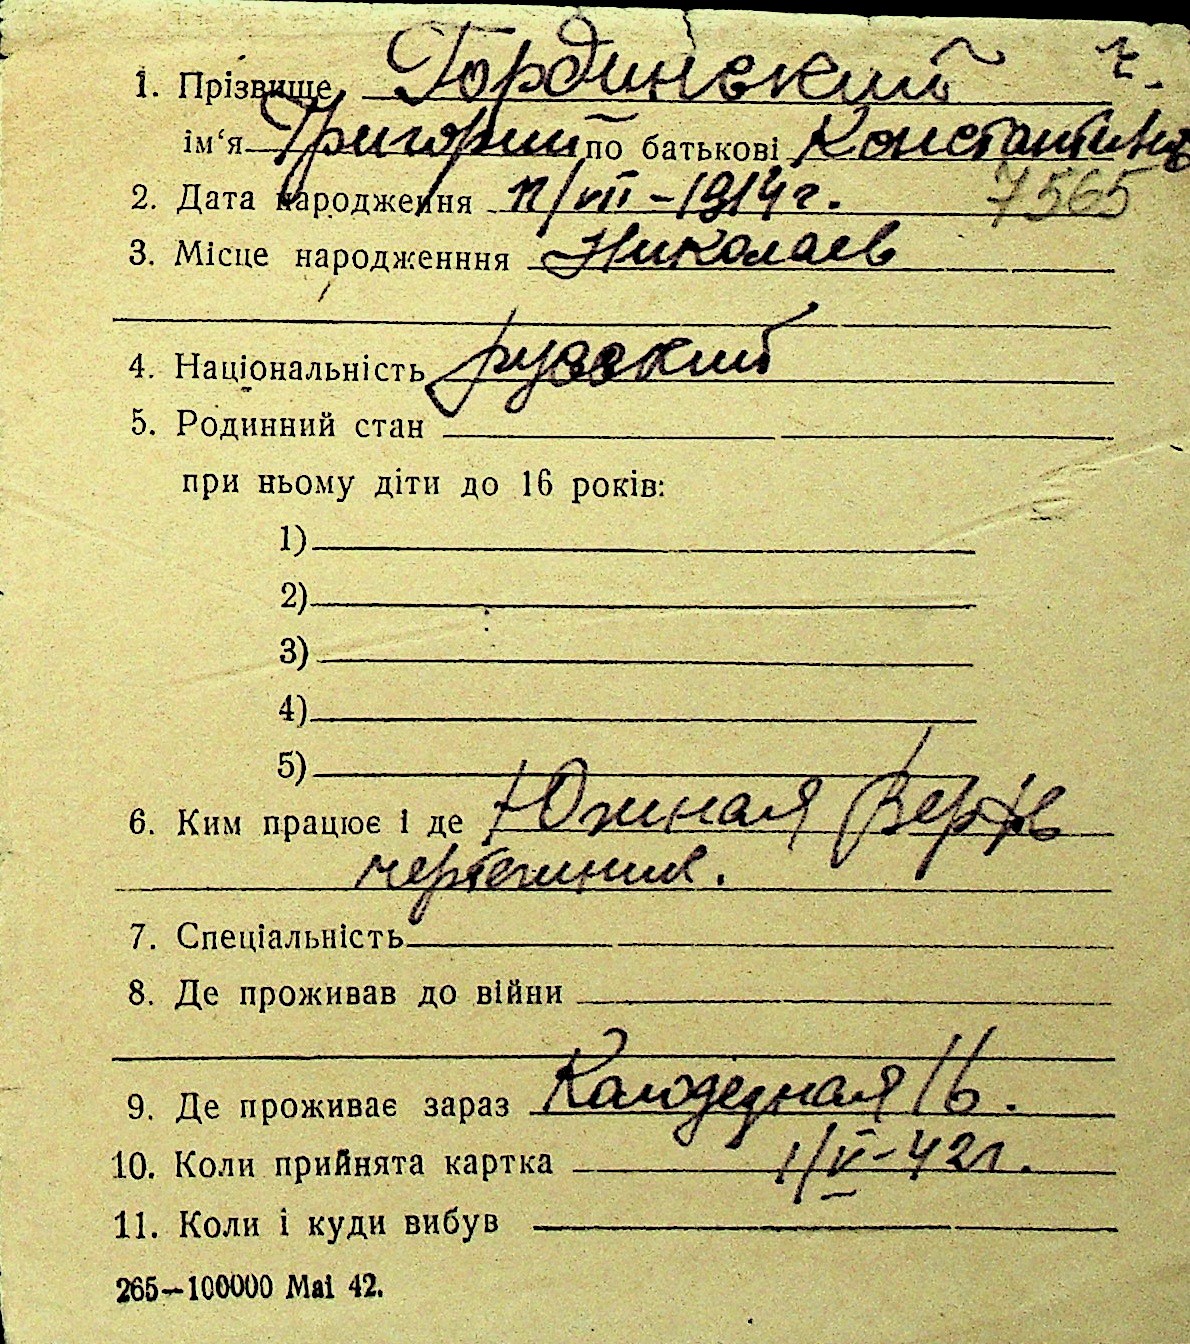 1. Прізвище Гординський ч.
ім‘я Григорий по батькові Константинов
2. Дата народження 11/VII-1914г. 7565
3. Місце народженння Николаев
4. Національність русский
5. Родинний стан
при ньому діти до 16 років:
1)
2)
3)
4)
5)
6. Ким працює і де Южная Верфь
чертежник.
7. Спеціальність
8. Де проживав до війни
9. Де проживає зараз Колодезная 16.
10. Коли прийнята картка 1/V-42г.
11. Коли і куди вибув
265—100000 Mai 42.